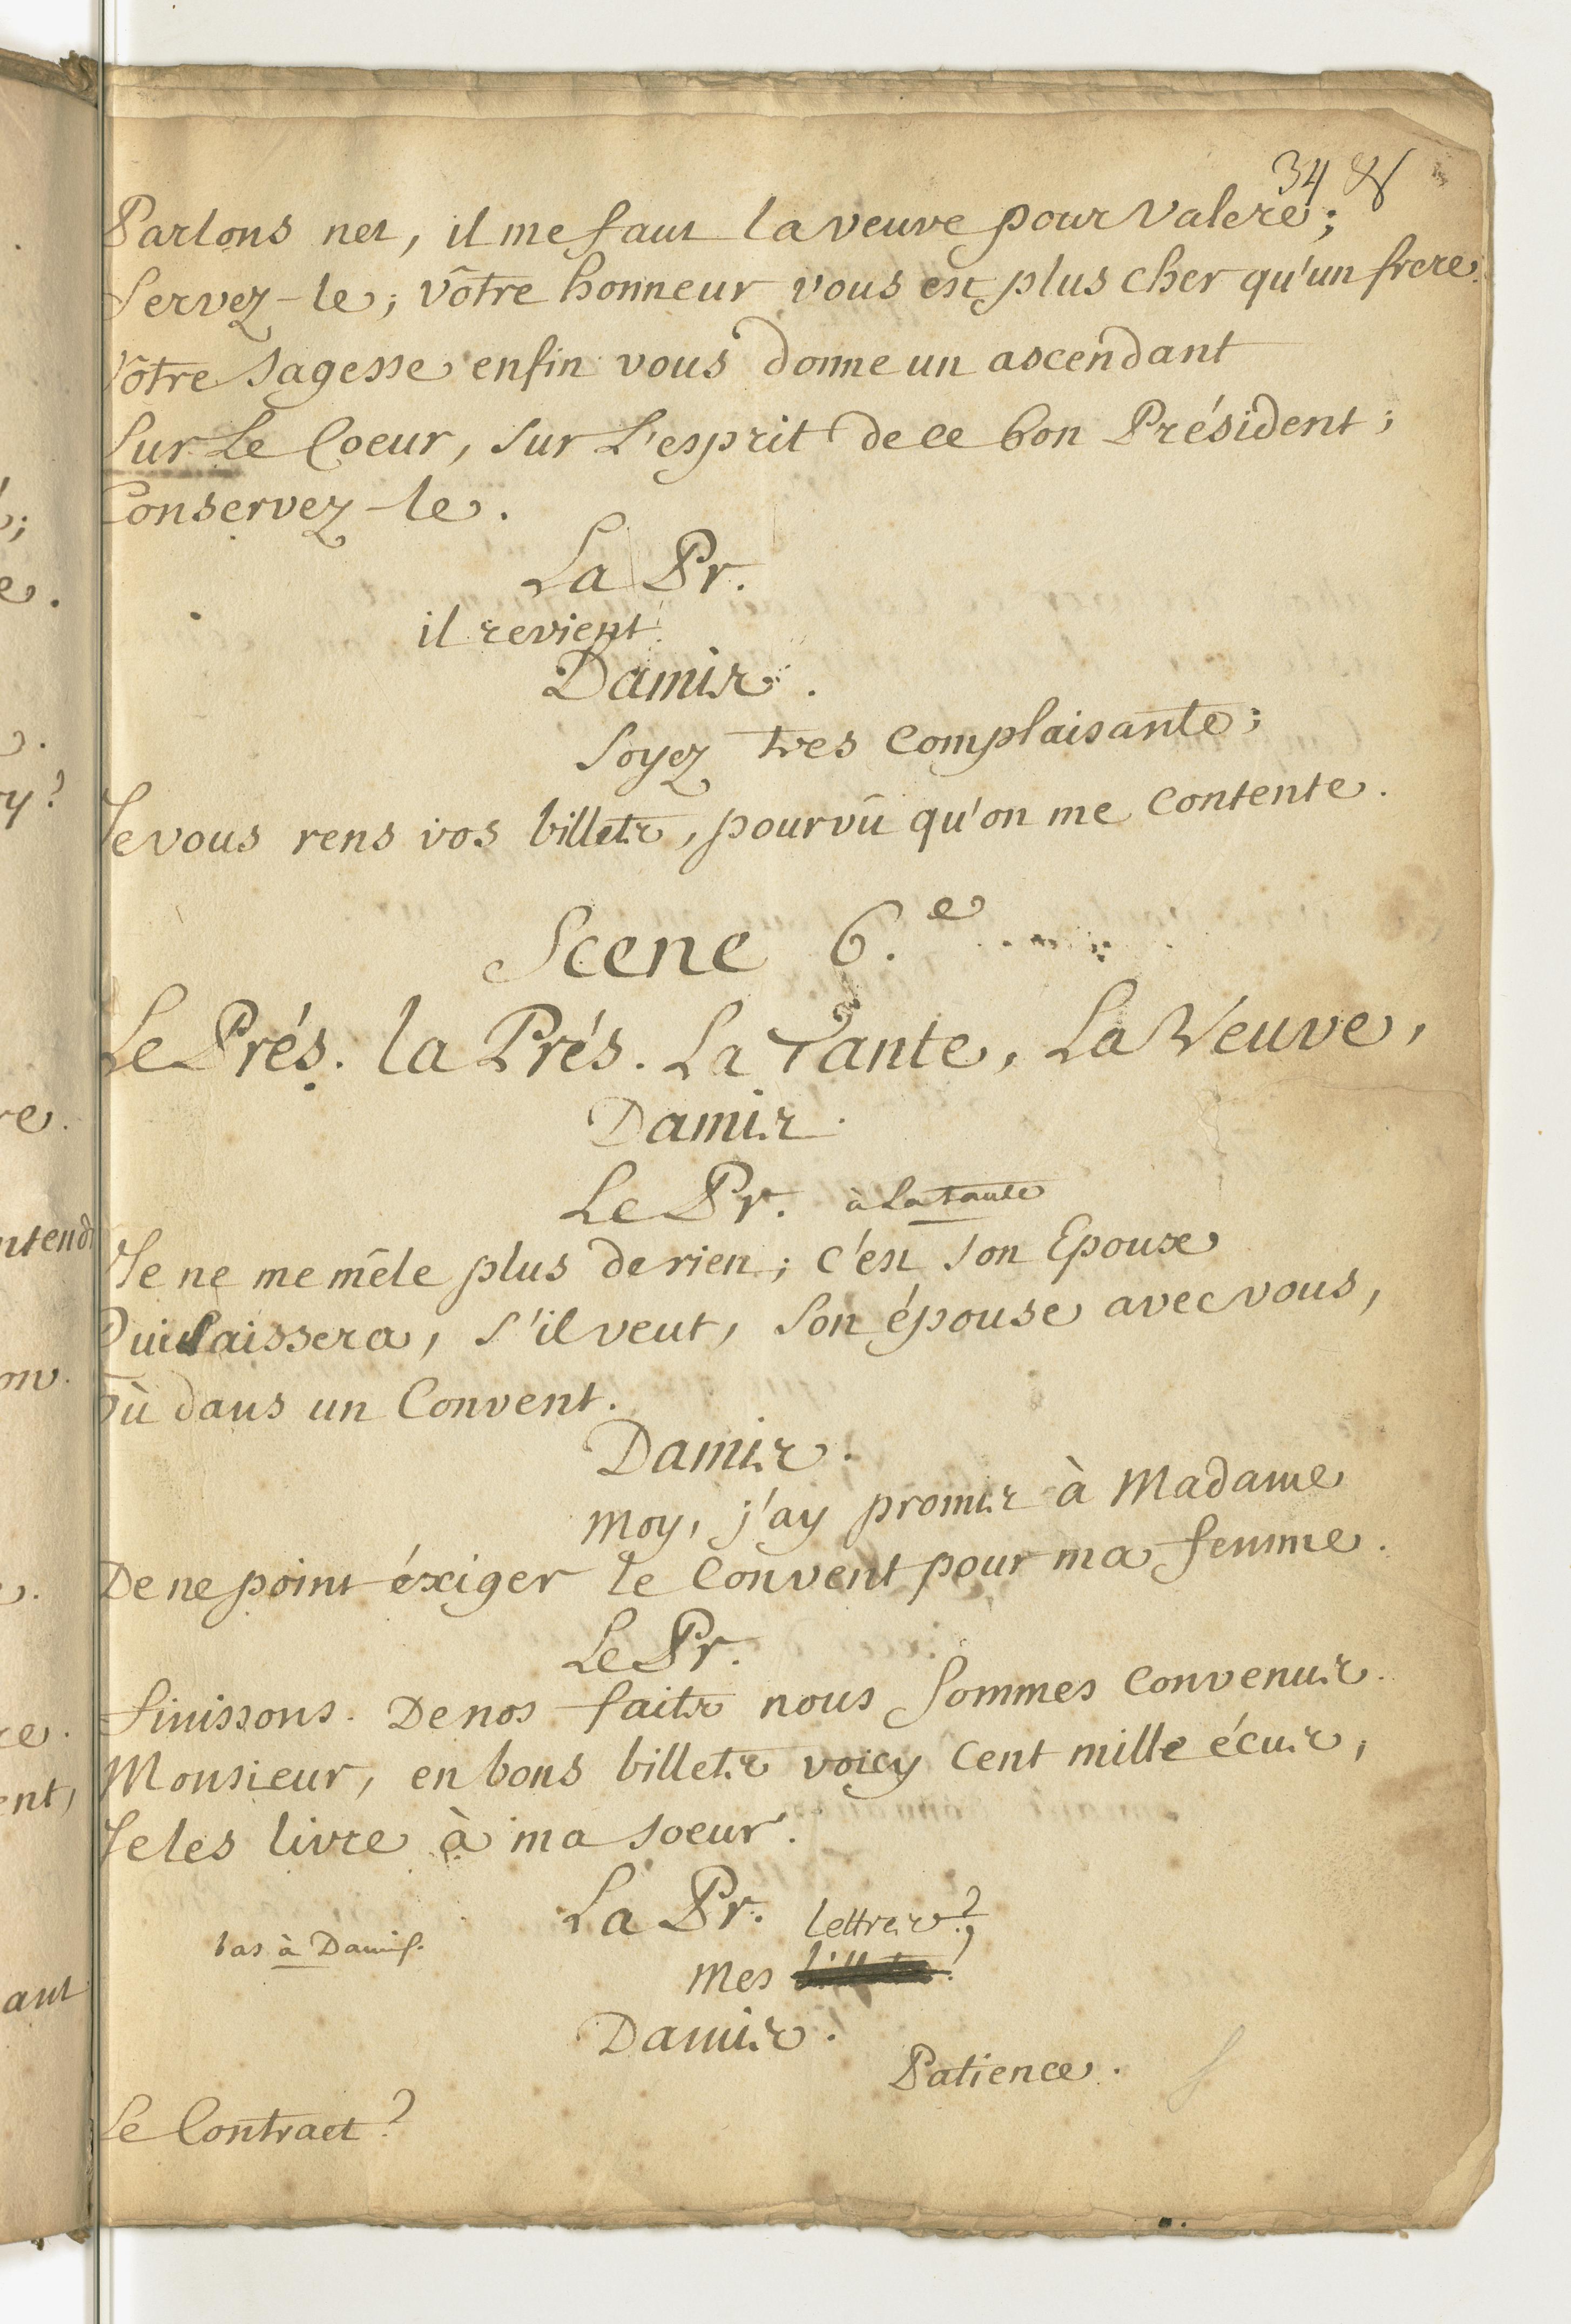 34
Parlons net, il me faut la veuve pour Valere;
Servez-le; vôtre honneur vous est plus cher qu'un frere.
Vôtre sagesse enfin vous donne un ascendant
Sur Le Coeur, sur L'esprit de ce bon Président;
Conservez-le.
La Pr.
il revient.
Damis.
Soyez tres complaisante;
Je vous rens vos billets, pourvû qu'on me contente.
Scene 6.e
Le Prés. la Prés. La Tante, La Veuve,
Damis.
Le Pr. à la tante
Je ne me mêle plus de rien; c'est son Epoux
Qui laissera, s'il veut, son épouse avec vous,
Où dans un Convent.
Damis.
Moy, j'ay promis à Madame
De ne point éxiger le Convent pour ma femme.
Le Pr.
Finissons. De nos faits nous sommes convenus.
Monsieur, en bons billets voicy cent mille écus,
Je les livre à ma soeur.
La Pr. lettres?
bas à Damis.
Mes
Damis.
Patience.
Le Contract?